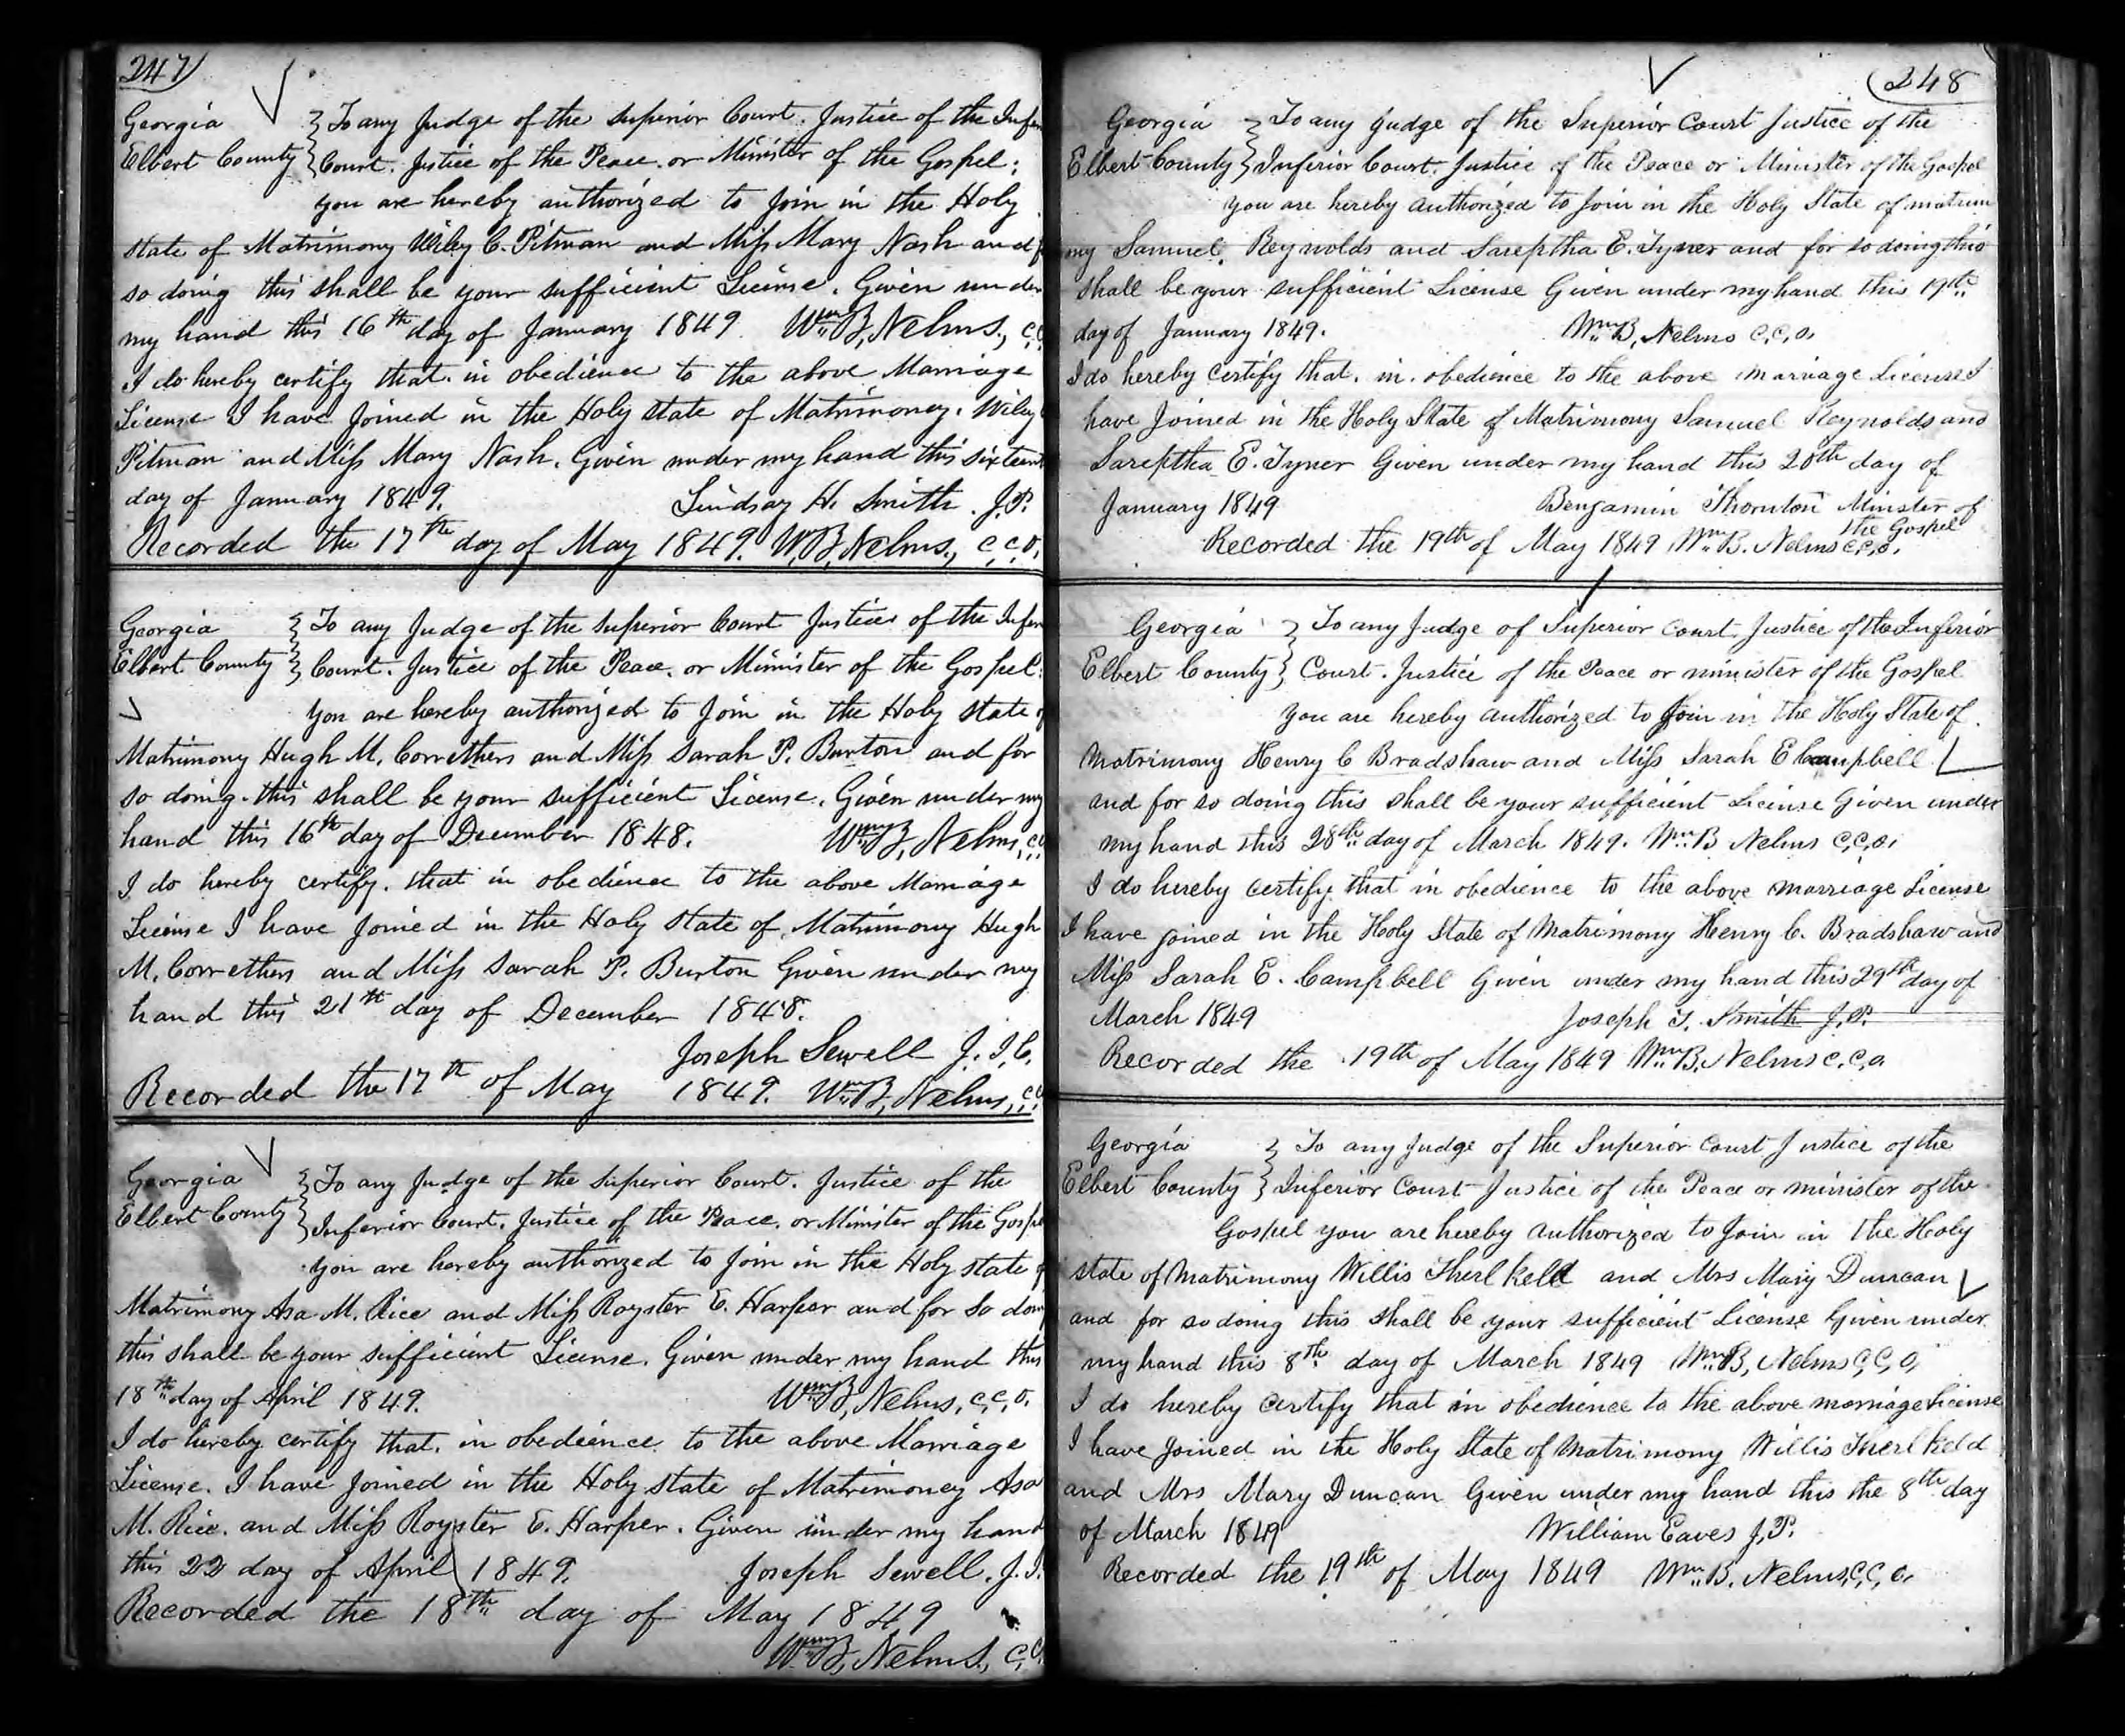 247
Georgia } To any Judge of the Superior Court. Justice of the Infer
Elbert County } Court. Justice of the Peace. or Minister of the Gospel:
you are hereby authorized to Join in the Holy
state of Matrimony Wiley C. Pitman and Miss Mary Nash and f
so doing this shall be your sufficient License. Given under
my hand this 16th day of January 1849. Wm. B. Nelms., C.C.
I do hereby certify that in obedience to the above Marriage
License I have Joined in the Holy state of Matrimoney. Wiley
Pitman and Miss Mary Nash. Given under my hand this sixteent
day of January 1849. Lindsay H. Smith. J.P.
Recorded the 17th day of May 1849. W.B. Nelms., C.C.O.
Georgia } To any Judge of the Superior Court Justice of the Infer
Elbert County } Court. Justice of the Peace. or Minister of the Gospel:
you are hereby authorized to Join in the Holy state
Matrimony Hugh M. Correthers and Miss Sarah P. Burton and for
so doing this shall be your sufficient License. Given under my
hand this 16th day of December 1848. Wm. B. Nelms, C.C.
I do hereby certify. that in obedience to the above Marriage
License I have Joined in the Holy state of Matrimony Hugh
M. Correthers and Miss Sarah P. Burton Given under my
hand this 21th day of December 1848.
Joseph Sewell J.I.C.
Recorded the 17th of May 1849. Wm. B. Nelms, C.C.
Georgia } To any Judge of the Superior Court. Justice of the
Elbert County } Inferior Court. Justice of the Peace. or Minister of the Gospe
you are hereby authorized to Join in the Holy state
Matrimony Asa M. Rice and Miss Royster E. Harper and for so doing
this shall be your sufficient License. Given under my hand this
18th day of April 1849. Wm. B. Nelms, C.C.O.
I do hereby certify that. in obedience to the above Marriage
License. I have Joined in the Holy state of Matrimoney Asa
M. Rice. and Miss Royster E. Harper. Given under my hand
this 22 day of April 1849. Joseph Sewell. J.I.
Recorded the 18th day of May 1849
Wm. B. Nelms., C.C.
248
Georgia } To any Judge of the Superior Court Justice of the
Elbert County } Inferior Court. Justice of the Peace or Minister of the Gospel
you are hereby authorized to Join in the Holy State of matrim
ony Samuel. Reynolds and Sareptha E. Tyner and for so doing this
shall be your sufficient License Given under my hand this 19th
day of January 1849. Wm. B. Nelms C.C.O.
I do hereby certify that. in. obedience to the above marriage License I
have Joined in the Holy State of Matrimony Samuel Reynolds and
Sareptha E. Tyner Given under my hand this 20th day of
January 1849 Benjamin Thornton Minister of
the Gospel
Recorded the 19th of May 1849 Wm. B. Nelms C.C.O.
Georgia } To any Judge of Superior Court Justice of the Inferior
Elbert County } Court. Justice of the Peace or minister of the Gospel
you are hereby authorized to Join in the Holy State of
Matrimony Henry C Bradshaw and Miss Sarah E Campbell
and for so doing this shall be your sufficient License Given under
my hand this 28th day of March 1849. Wm. B Nelms C.C.O.
I do hereby certify that in obedience to the above marriage License
I have joined in the Holy State of Matrimony Henry C. Bradshaw and
Miss Sarah E. Campbell Given under my hand this 29th day of
March 1849 Joseph T. Smith J.P.
Recorded the 19th of May 1849 Wm. B. Nelms C.C.O.
Georgia } To any Judge of the Superior Court Justice of the
Elbert County } Inferior Court Justice of the Peace or minister of the
Gospel you are hereby authorized to Join in the Holy
state of Matrimony Willis Therlkeld and Mrs Mary Duncan
and for so doing this shall be your sufficient License Given under
my hand this 8th day of March 1849 Wm. B. Nelms C.C.O.
I do hereby certify that in obedience to the above marriage License
I have Joined in the Holy State of Matrimony Willis Therlkeld
and Mrs Mary Duncan Given under my hand this the 8th day
of March 1849 William Eaves J.P.
Recorded the 19th of May 1849 Wm. B. Nelms, C.C.O.